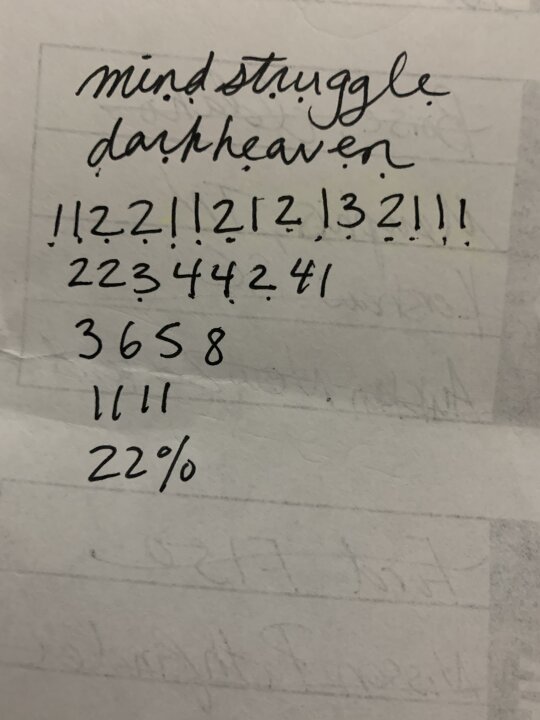 mind struggle
darkheaven
112211212132111
22344241
3658
1111
22%